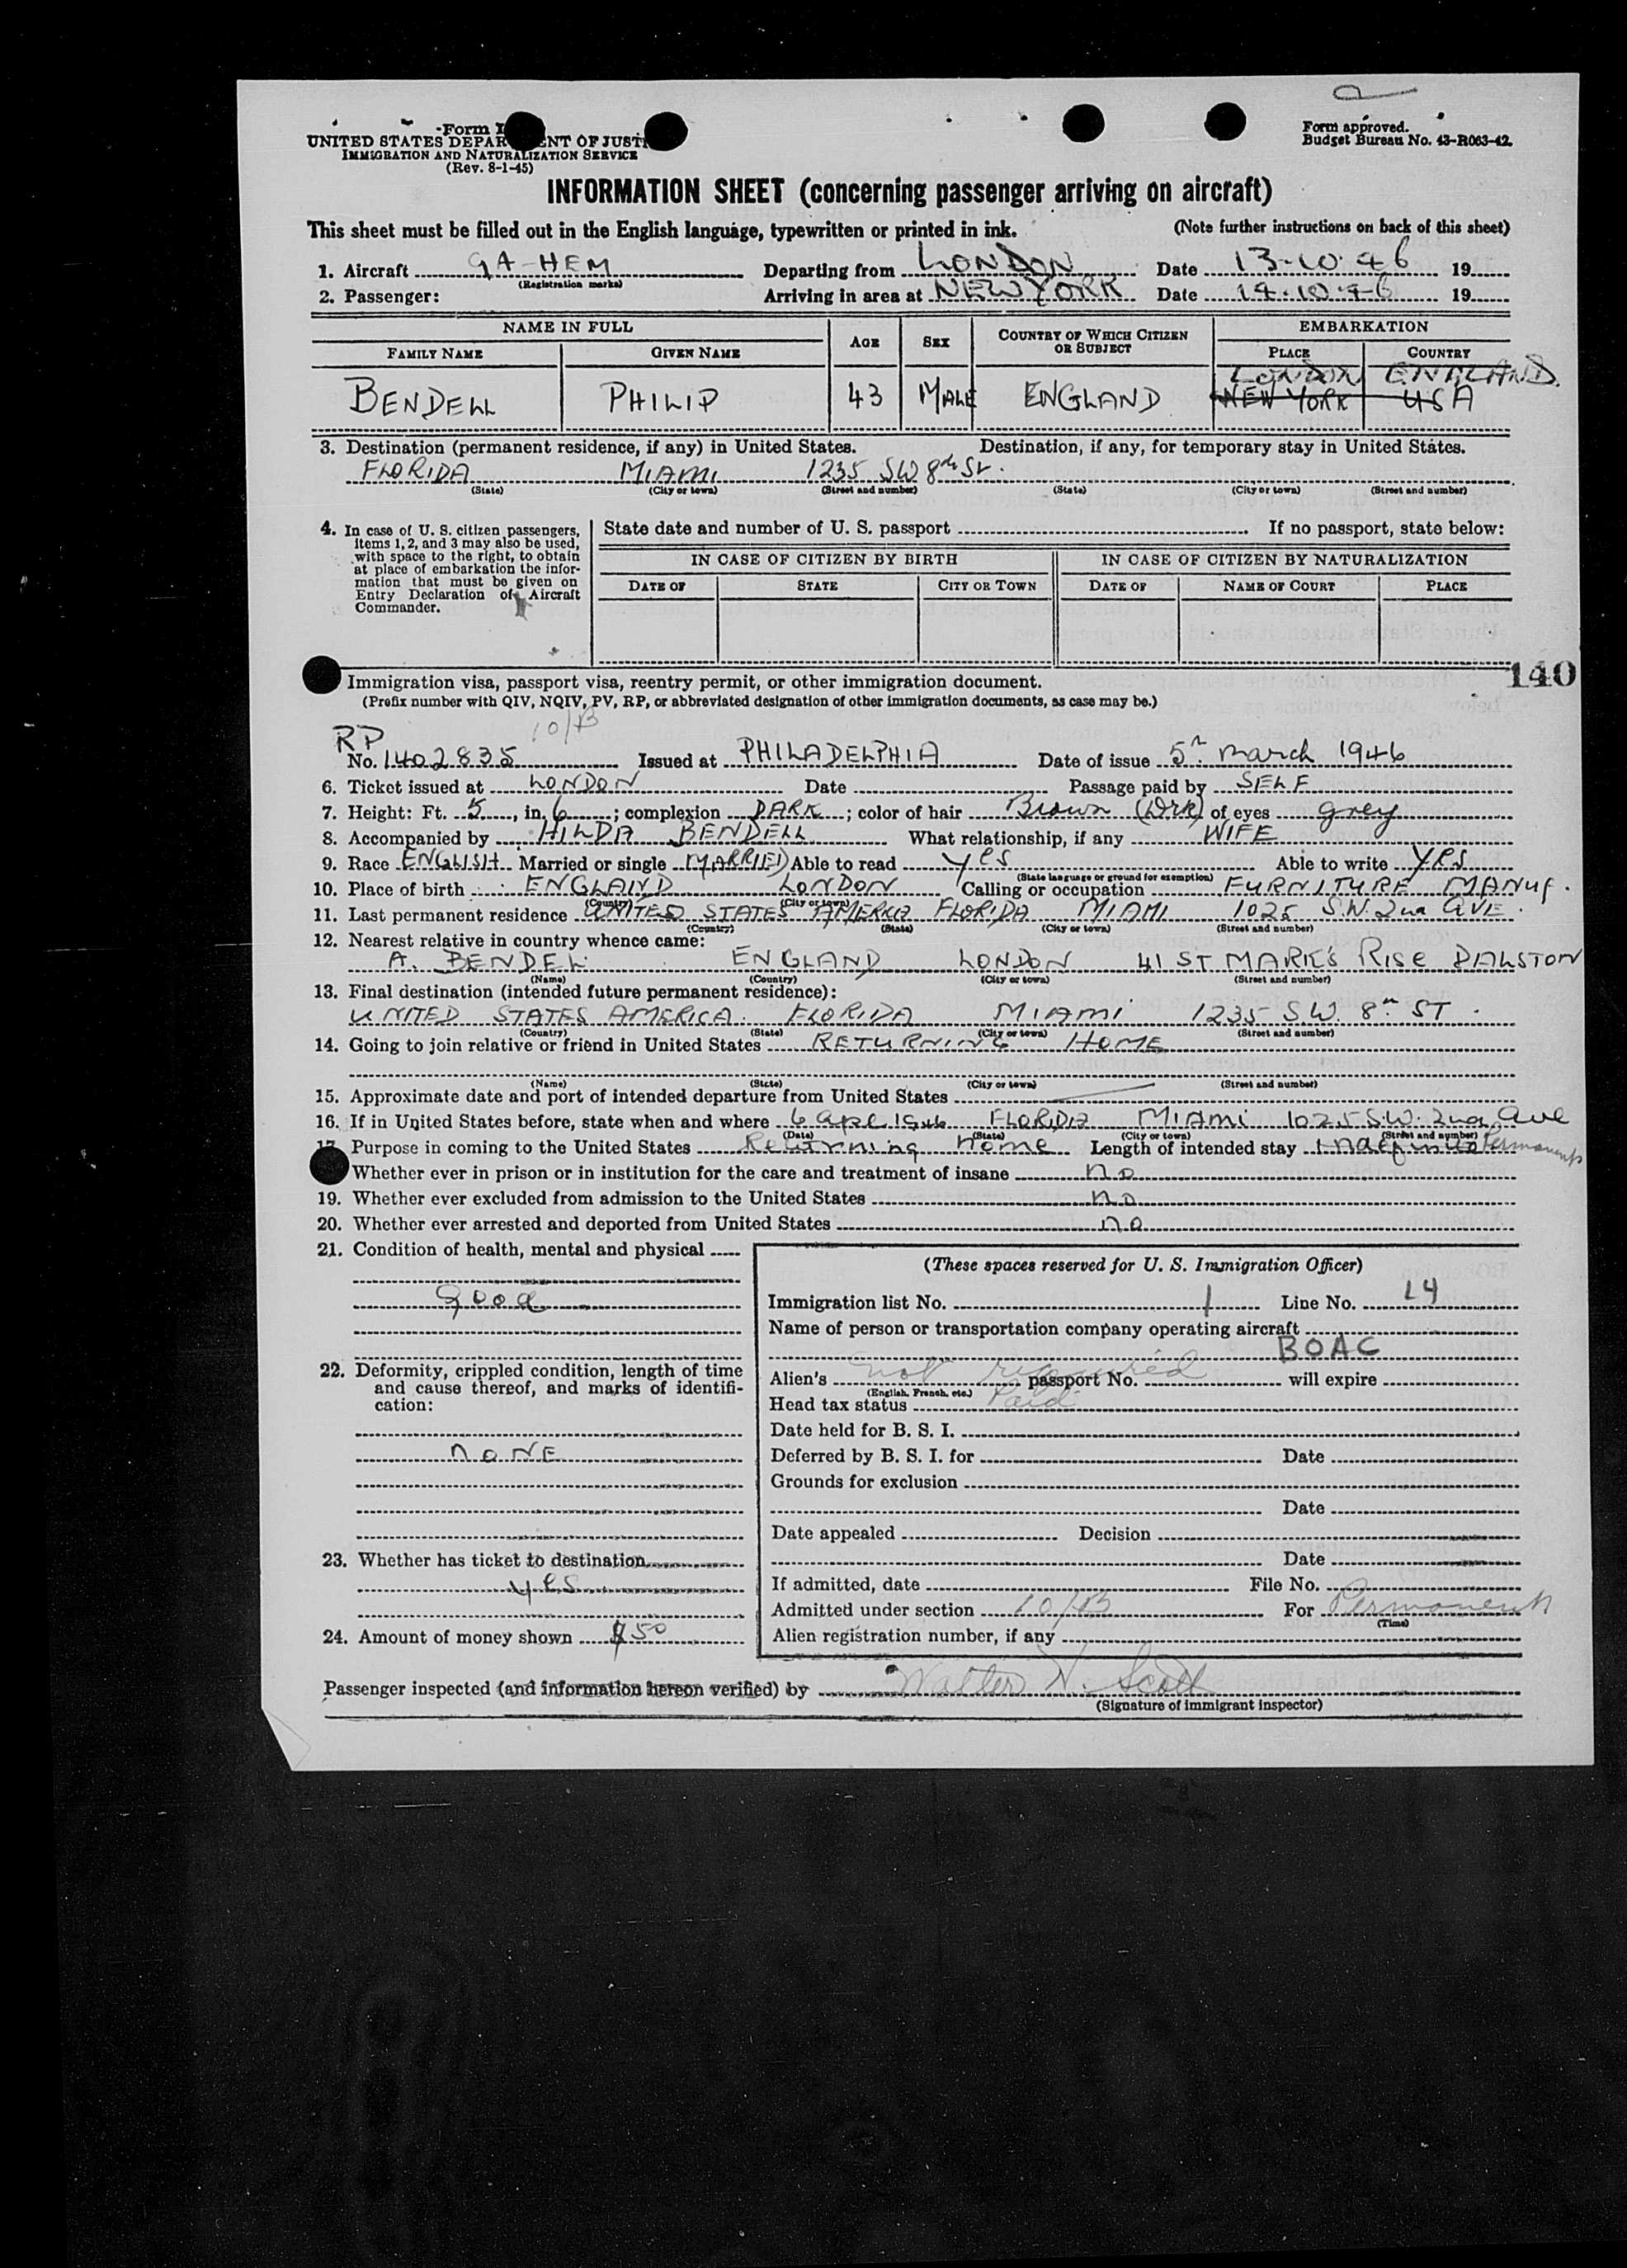 Form I
UNITED STATES DEPAR ENT OF JUSTI
IMMIGRATION AND NATURALIZATION SERVICE
(Rev. 8-1-45)
Form approved.
Budget Bureau No. 43-R063-42.
INFORMATION SHEET (concerning passenger arriving on aircraft)
This sheet must be filled out in the English language, typewritten or printed in ink. (Note further instructions on back of this sheet)
1. Aircraft GA-HEM Departing from LONDON Date 13-10-46 19
(Registration marks)
2. Passenger: Arriving in area at NEW YORK Date 14.10.46 19
NAME IN FULL AGE SEX COUNTRY OF WHICH CITIZEN OR SUBJECT EMBARKATION
FAMILY NAME GIVEN NAME PLACE COUNTRY
LONDON ENGLAND.
BENDELL PHILIP 43 MALE ENGLAND NEW YORK USA
3. Destination (permanent residence, if any) in United States. Destination, if any, for temporary stay in United States.
FLORIDA MIAMI 1235 SW 8th St.
(State) (City or town) (Street and number) (State) (City or town) (Street and number)
4. In case of U. S. citizen passengers,
items 1, 2, and 3 may also be used,
with space to the right, to obtain
at place of embarkation the infor-
mation that must be given on
Entry Declaration of Aircraft
Commander.
State date and number of U. S. passport If no passport, state below:
IN CASE OF CITIZEN BY BIRTH IN CASE OF CITIZEN BY NATURALIZATION
DATE OF STATE CITY OR TOWN DATE OF NAME OF COURT PLACE
140
Immigration visa, passport visa, reentry permit, or other immigration document.
(Prefix number with QIV, NQIV, PV, RP, or abbreviated designation of other immigration documents, as case may be.)
10/B
RP
No. 1402835 Issued at PHILADELPHIA Date of issue 5th March 1946
6. Ticket issued at LONDON Date Passage paid by SELF
7. Height: Ft. 5, in. 6; complexion DARK; color of hair Brown (Drk) of eyes grey
8. Accompanied by HILDA BENDELL What relationship, if any WIFE
9. Race ENGLISH Married or single MARRIED Able to read yes Able to write YES
(State language or ground for exemption)
10. Place of birth ENGLAND LONDON Calling or occupation FURNITURE MANUF.
(Country) (City or town)
11. Last permanent residence UNITED STATES AMERICA FLORIDA MIAMI 1025 S.W. 2nd AVE.
(Country) (State) (City or town) (Street and number)
12. Nearest relative in country whence came:
A. BENDEL ENGLAND LONDON 41 ST MARK'S RISE DALSTON
(Name) (Country) (City or town) (Street and number)
13. Final destination (intended future permanent residence):
UNITED STATES AMERICA. FLORIDA MIAMI 1235 S.W. 8th ST.
(Country) (State) (City or town) (Street and number)
14. Going to join relative or friend in United States RETURNING HOME
(Name) (State) (City or town) (Street and number)
15. Approximate date and port of intended departure from United States
16. If in United States before, state when and where 6 apl 1946 FLORIDA MIAMI 1025 S.W. 2nd ave
(Date) (State) (City or town) (Street and number)
17. Purpose in coming to the United States Returning home Length of intended stay Indefinite Permanent
Whether ever in prison or in institution for the care and treatment of insane no
19. Whether ever excluded from admission to the United States no
20. Whether ever arrested and deported from United States no
21. Condition of health, mental and physical
good
22. Deformity, crippled condition, length of time
and cause thereof, and marks of identifi-
cation:
NONE
23. Whether has ticket to destination
yes
24. Amount of money shown $50
(These spaces reserved for U. S. Immigration Officer)
Immigration list No. 1 Line No. 14
Name of person or transportation company operating aircraft
BOAC
Alien's not required passport No. will expire
(English, French, etc.)
Head tax status Paid
Date held for B. S. I.
Deferred by B. S. I. for Date
Grounds for exclusion
Date
Date appealed Decision
Date
If admitted, date File No.
Admitted under section 10/B For Permanent
(Time)
Alien registration number, if any
Passenger inspected (and information hereon verified) by Walter W. Scott
(Signature of immigrant inspector)